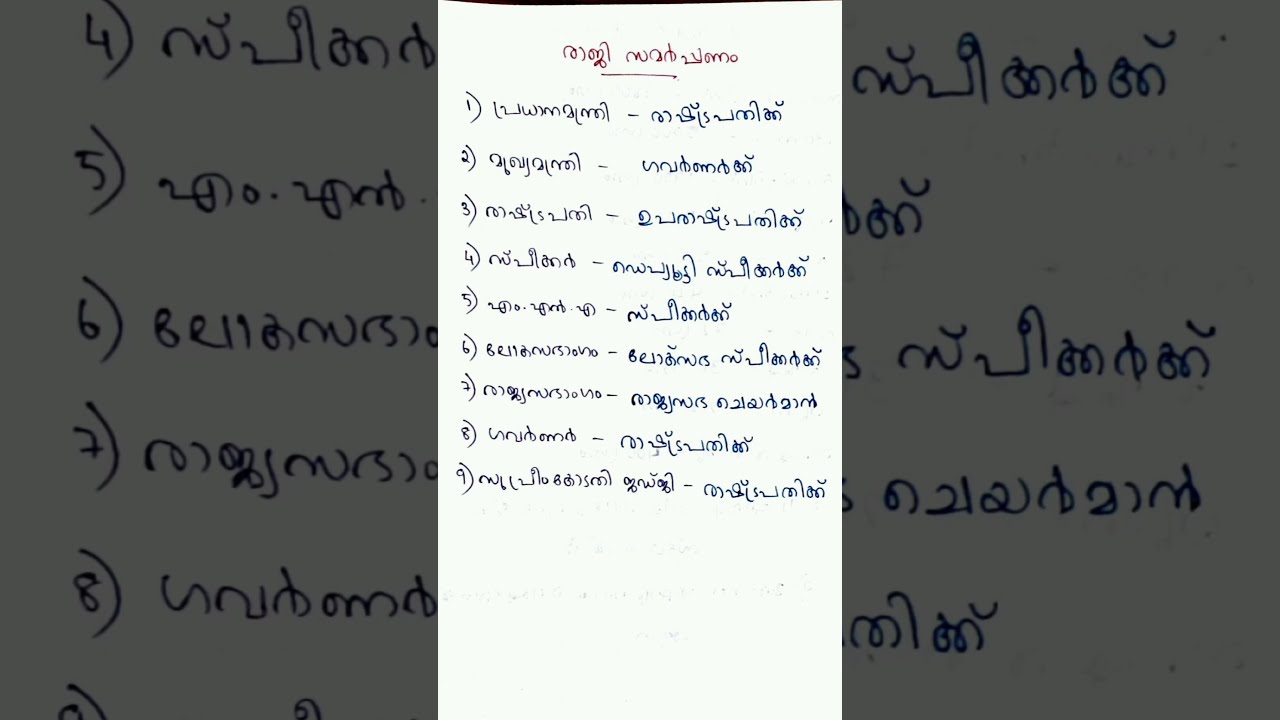 രാജി സമർപ്പണം
1) പ്രധാനമന്ത്രി - രാഷ്ട്രപതിക്ക്
2) മുഖ്യമന്ത്രി - ഗവർണർക്ക്
3) രാഷ്ട്രപതി - ഉപരാഷ്ട്രപതിക്ക്
4) സ്പീക്കർ - ഡെപ്യൂട്ടി സ്പീക്കർക്ക്
5) എം.എൽ.എ - സ്പീക്കർക്ക്
6) ലോകസഭാംഗം - ലോക്സഭ സ്പീക്കർക്ക്
7) രാജ്യസഭാംഗം - രാജ്യസഭ ചെയർമാൻ
8) ഗവർണർ - രാഷ്ട്രപതിക്ക്
9) സുപ്രീംകോടതി ജഡ്ജി - രാഷ്ട്രപതിക്ക്